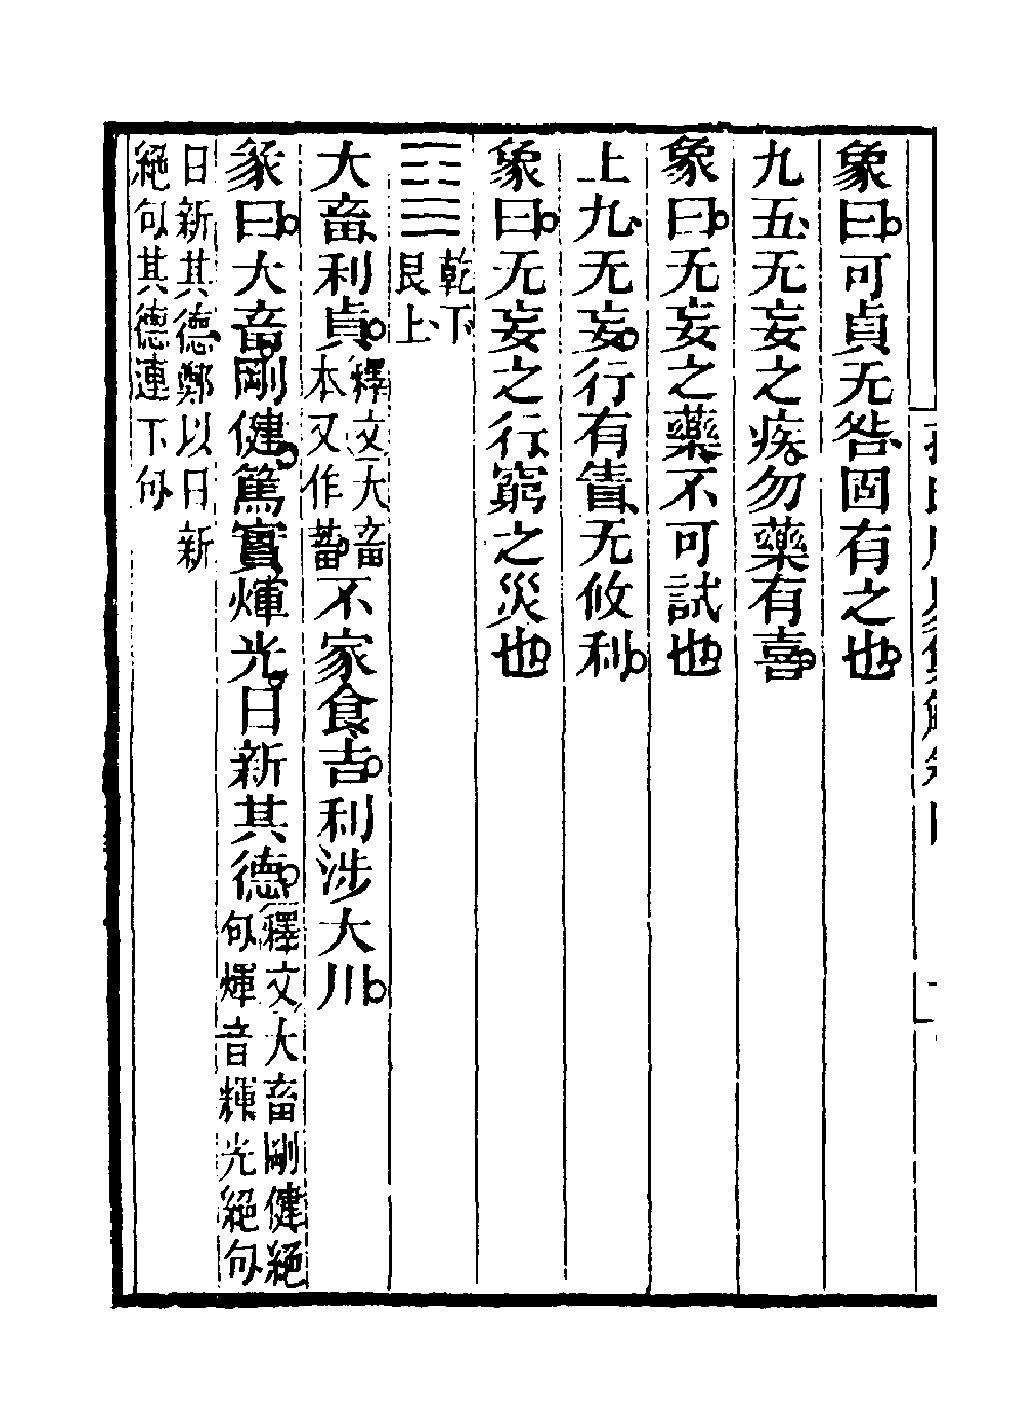 象曰。可貞无咎、固有之也。
九五、无妄之疾。勿藥有喜。
象曰。无妄之藥、不可試也。
上九、无妄。行有眚、无攸利。
象曰。无妄之行、窮之災也。
䷙乾下艮上、
大畜、利貞。釋文大畜本又作蓄。不家食、吉。利涉大川。
彖曰。大畜、剛健。篤實、煇光、日新其德。釋文大畜剛健絕句、煇音輝光絕句、
日新其德、鄭以日新絕句、其德連下句、